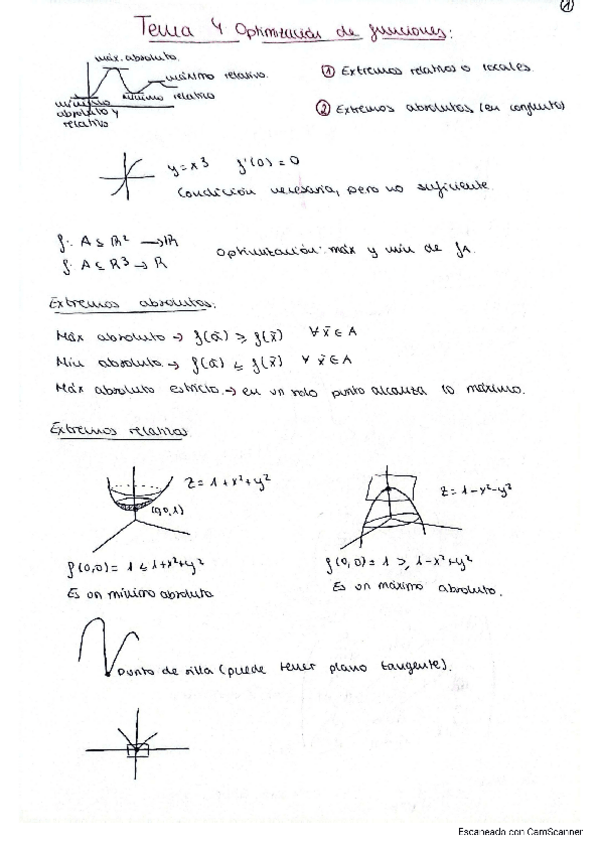 1
Tema 4 Optimización de funciones:
máx. absoluto.
máximo relativo.
mínimo relativo
mínimo
absoluto y
relativo
① Extremos relativos o locales.
② Extremos absolutos (en conjunto)
y = x³ f'(0) = 0
Condición necesaria, pero no suficiente.
f: A ⊆ R² → R
f: A ⊆ R³ → R
Optimización: máx y mín de f_A.
Extremos absolutos:
Máx absoluto → f(ā) ≥ f(x̄) ∀ x̄ ∈ A
Mín absoluto → f(ā) ≤ f(x̄) ∀ x̄ ∈ A
Máx absoluto estricto → en un solo punto alcanza lo máximo.
Extremos relativos
z = 1 + x² + y²
(0,0,1)
z = 1 - x² - y²
f(0,0) = 1 ≤ 1 + x² + y²
Es un mínimo absoluto
f(0,0) = 1 ≥ 1 - x² + y²
Es un máximo absoluto.
punto de silla (puede tener plano tangente).
Escaneado con CamScanner